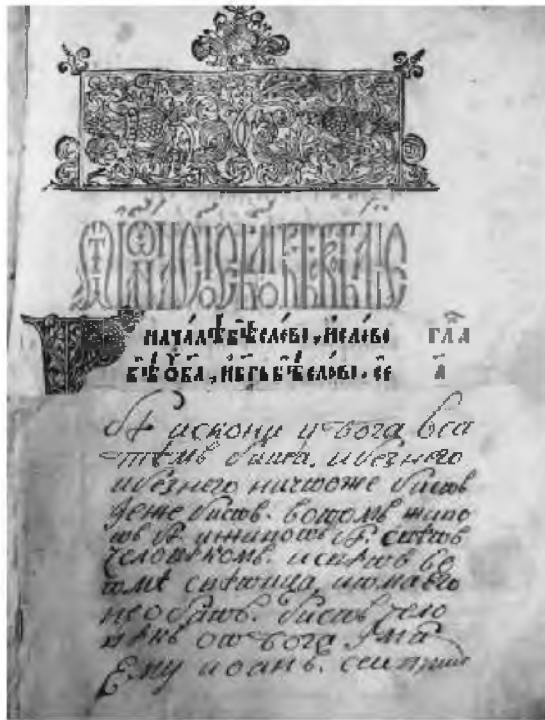 началѣ бѣ слово, и слово гла
бѣ ѹ бг҃а, и бг҃ъ бѣ слово. се а
бѣ искони у бога вса
тѣмъ быша. ибезнего
ибезнего ничтоже бысть
еже бысть. вотомъ живо
тъ бѣ. иживотъ бѣ свѣтъ
человѣкомъ. исвѣтъ во
тмѣ свѣтитца, итма его
не обятъ. бысть чело
вѣкъ отъ бога имя
Ему иоанъ. сеи